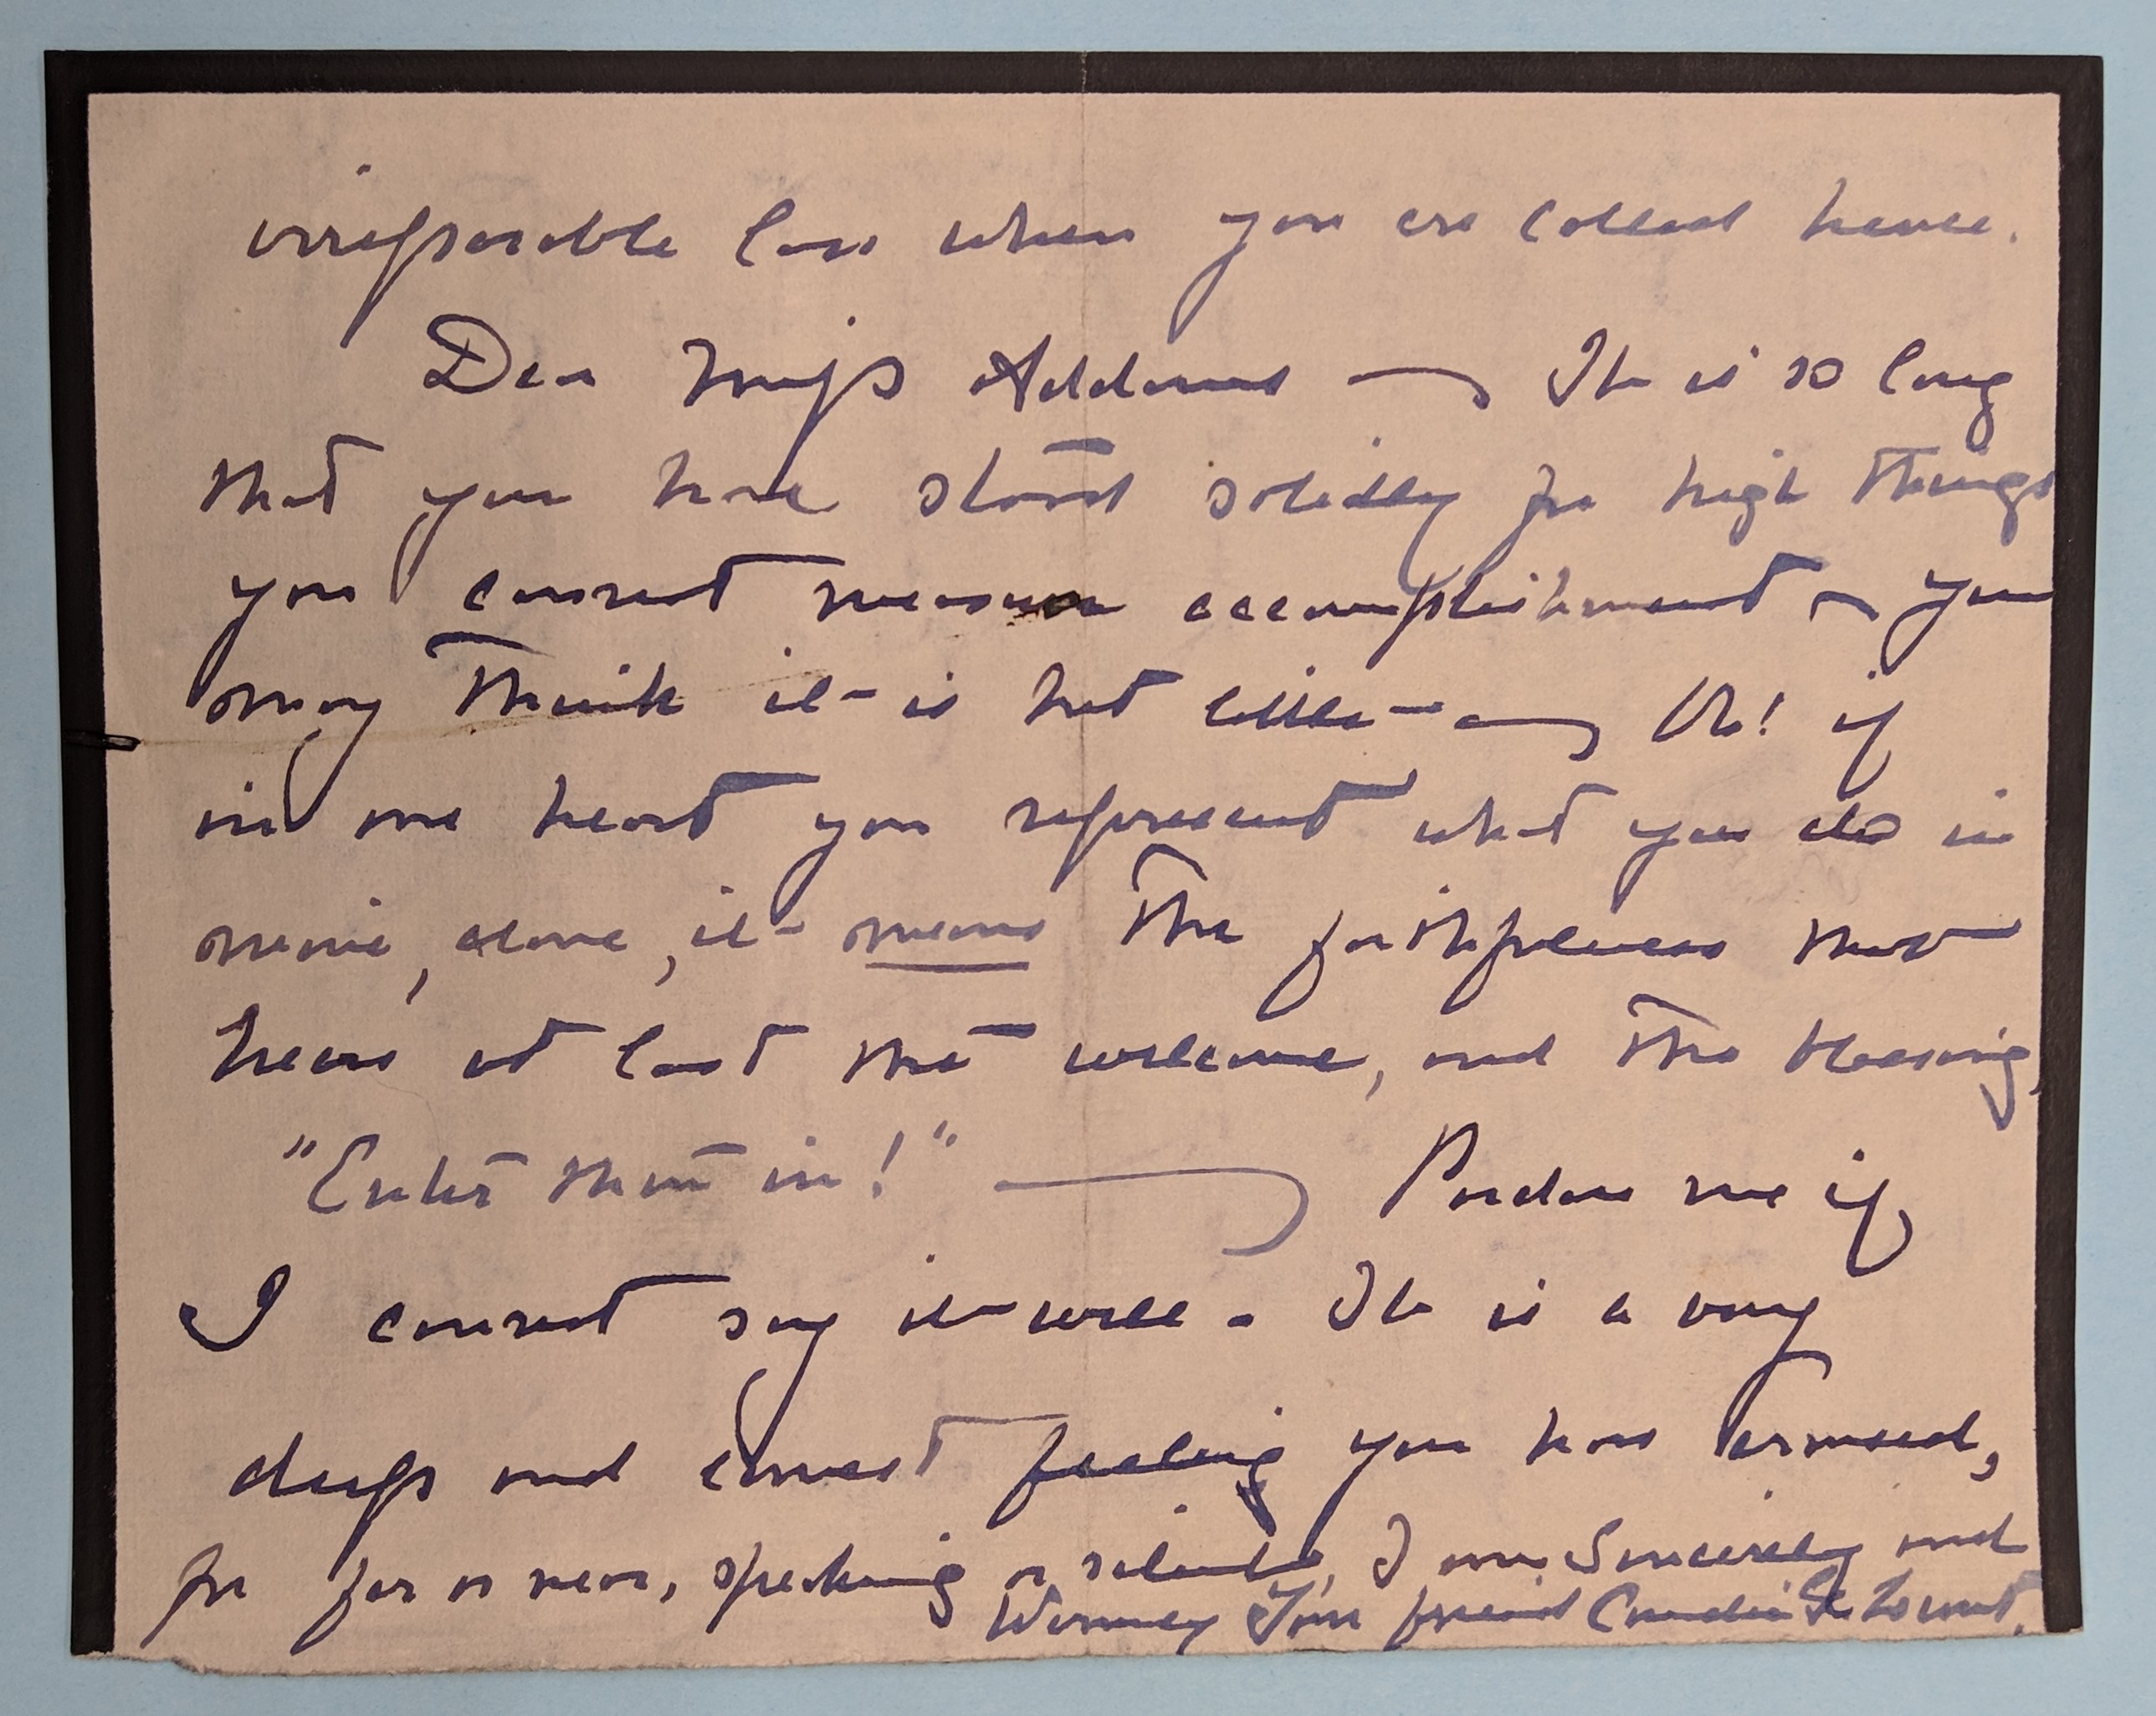 irreparable loss when you are called hence.
Dear Miss Addams — It is so long
that you have stood solidly for high things
you cannot measure accomplishment — you
may think it is but little — Oh! if
in one heart you represent what you do in
mine, alone, it means the faithfulness that
hears at last the welcome, and the blessing,
"Enter thou in!" — Pardon me if
I cannot say it well - It is a very
deep and earnest feeling you have aroused,
for far or near, speaking or silent, I am Sincerely and
Warmly Your friend